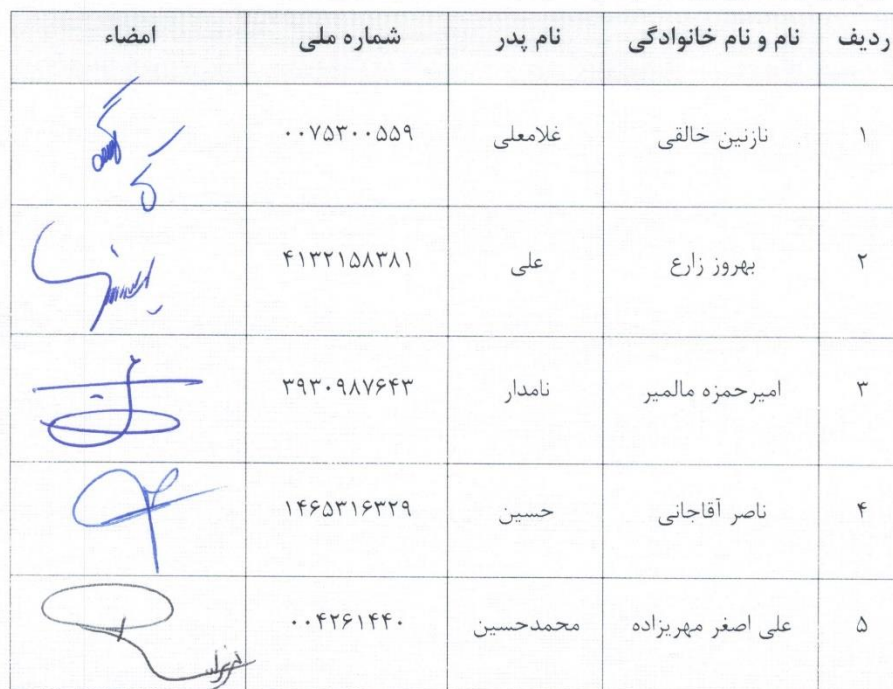 ردیف نام و نام خانوادگی نام پدر شماره ملی امضاء
۱ نازنین خالقی غلامعلی ۰۰۷۵۳۰۰۵۵۹
۲ بهروز زارع علی ۴۱۳۲۱۵۸۳۸۱
۳ امیرحمزه مالمیر نامدار ۳۹۳۰۹۸۷۶۴۳
۴ ناصر آقاجانی حسین ۱۴۶۵۳۱۶۳۲۹
۵ علی اصغر مهریزاده محمدحسین ۰۰۴۲۶۱۴۴۰